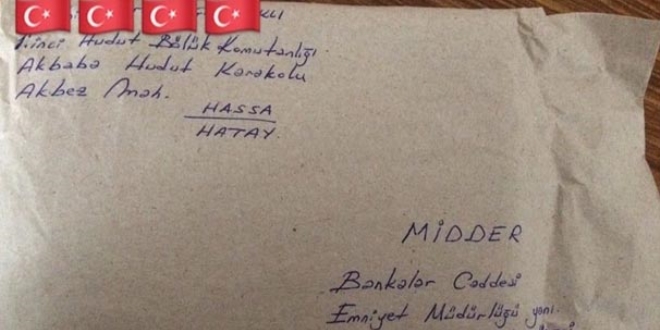 Hudut Bölük Komutanlığı
Akbaba Hudut Karakolu
Akbez Mah.
HASSA
HATAY
MİDDER
Bankalar Caddesi
Emniyet Müdürlüğü yanı